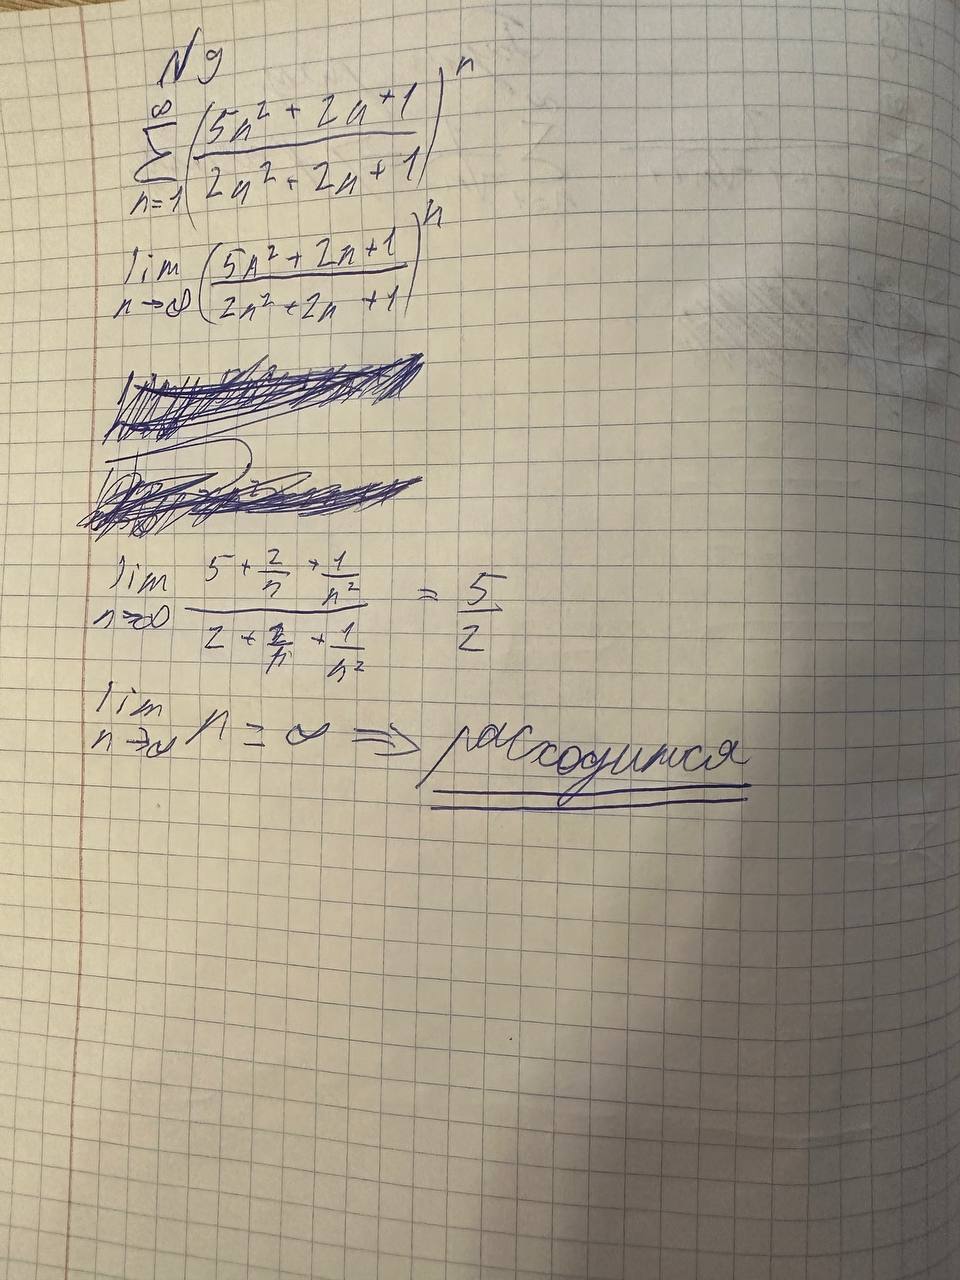 N9
∞
∑ ((5n² + 2n + 1)/(2n² + 2n + 1))ⁿ
n=1
lim ((5n² + 2n + 1)/(2n² + 2n + 1))ⁿ
n→∞
lim (5 + 2/n + 1/n²)/(2 + 2/n + 1/n²) = 5/2
n→∞
lim n = ∞ ⇒ расходится
n→∞